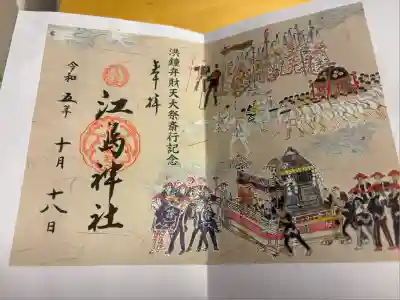 洪鐘弁財天大祭斎行記念
奉拝
江島神社
令和五年 十月 十八日